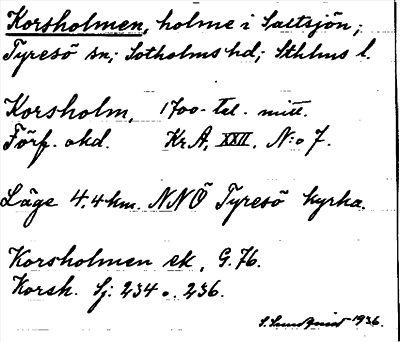 Korsholmen, holme i Saltsjön;
Tyresö sn; Sotholms hd; Sthlms l.
Korsholm, 1700-tal. mitt.
Förf. okd. Kr.A, XXII, N:o 7.
Läge 4.4 km. NNÖ Tyresö kyrka.
Korsholmen ek. G. 76.
Korsh. Sj: 234 o. 236.
S. Sundqvist 1936.